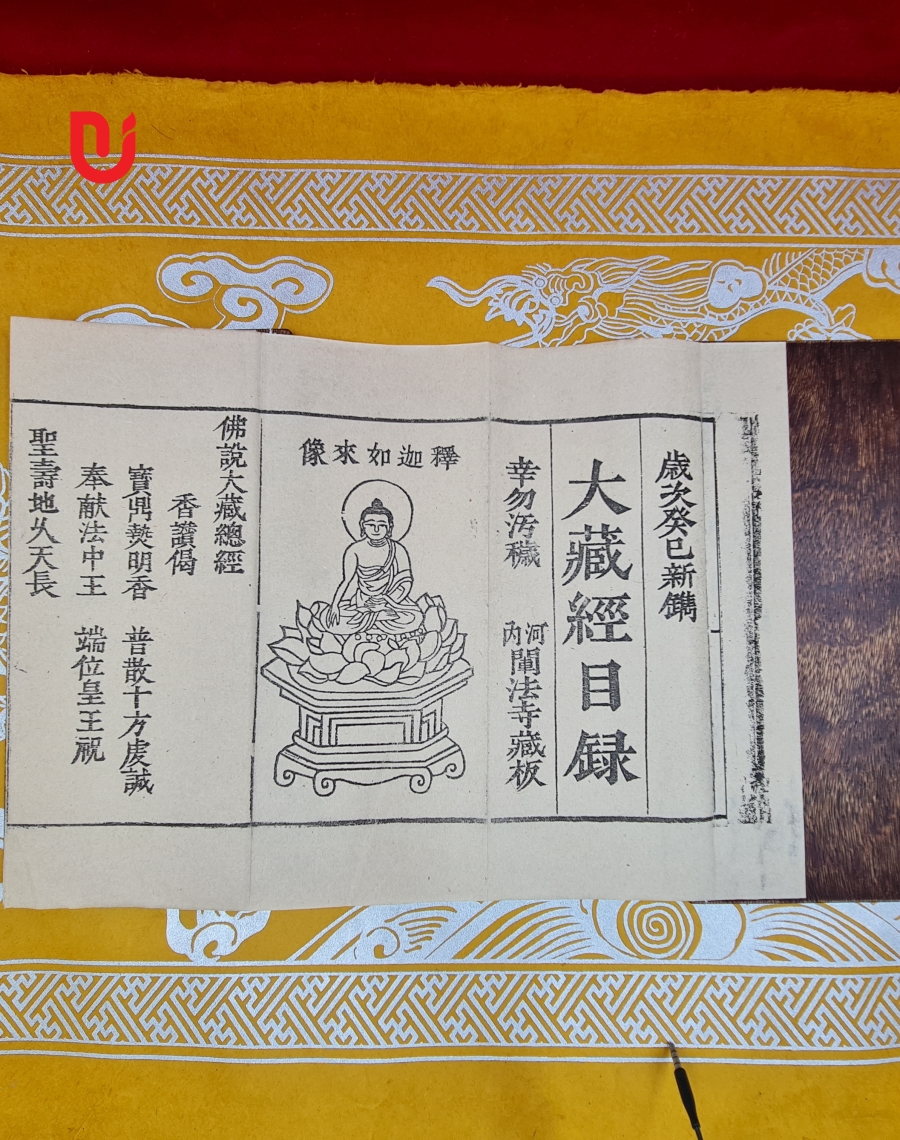 歲次癸巳新鐫
大藏經目録
幸勿污穢
河内
闡法寺藏板
釋迦如來像
佛說大藏總經
香讚偈
寶鼎爇明香 普散十方虔誠
奉献法中王 端位皇王祝
聖壽地久天長